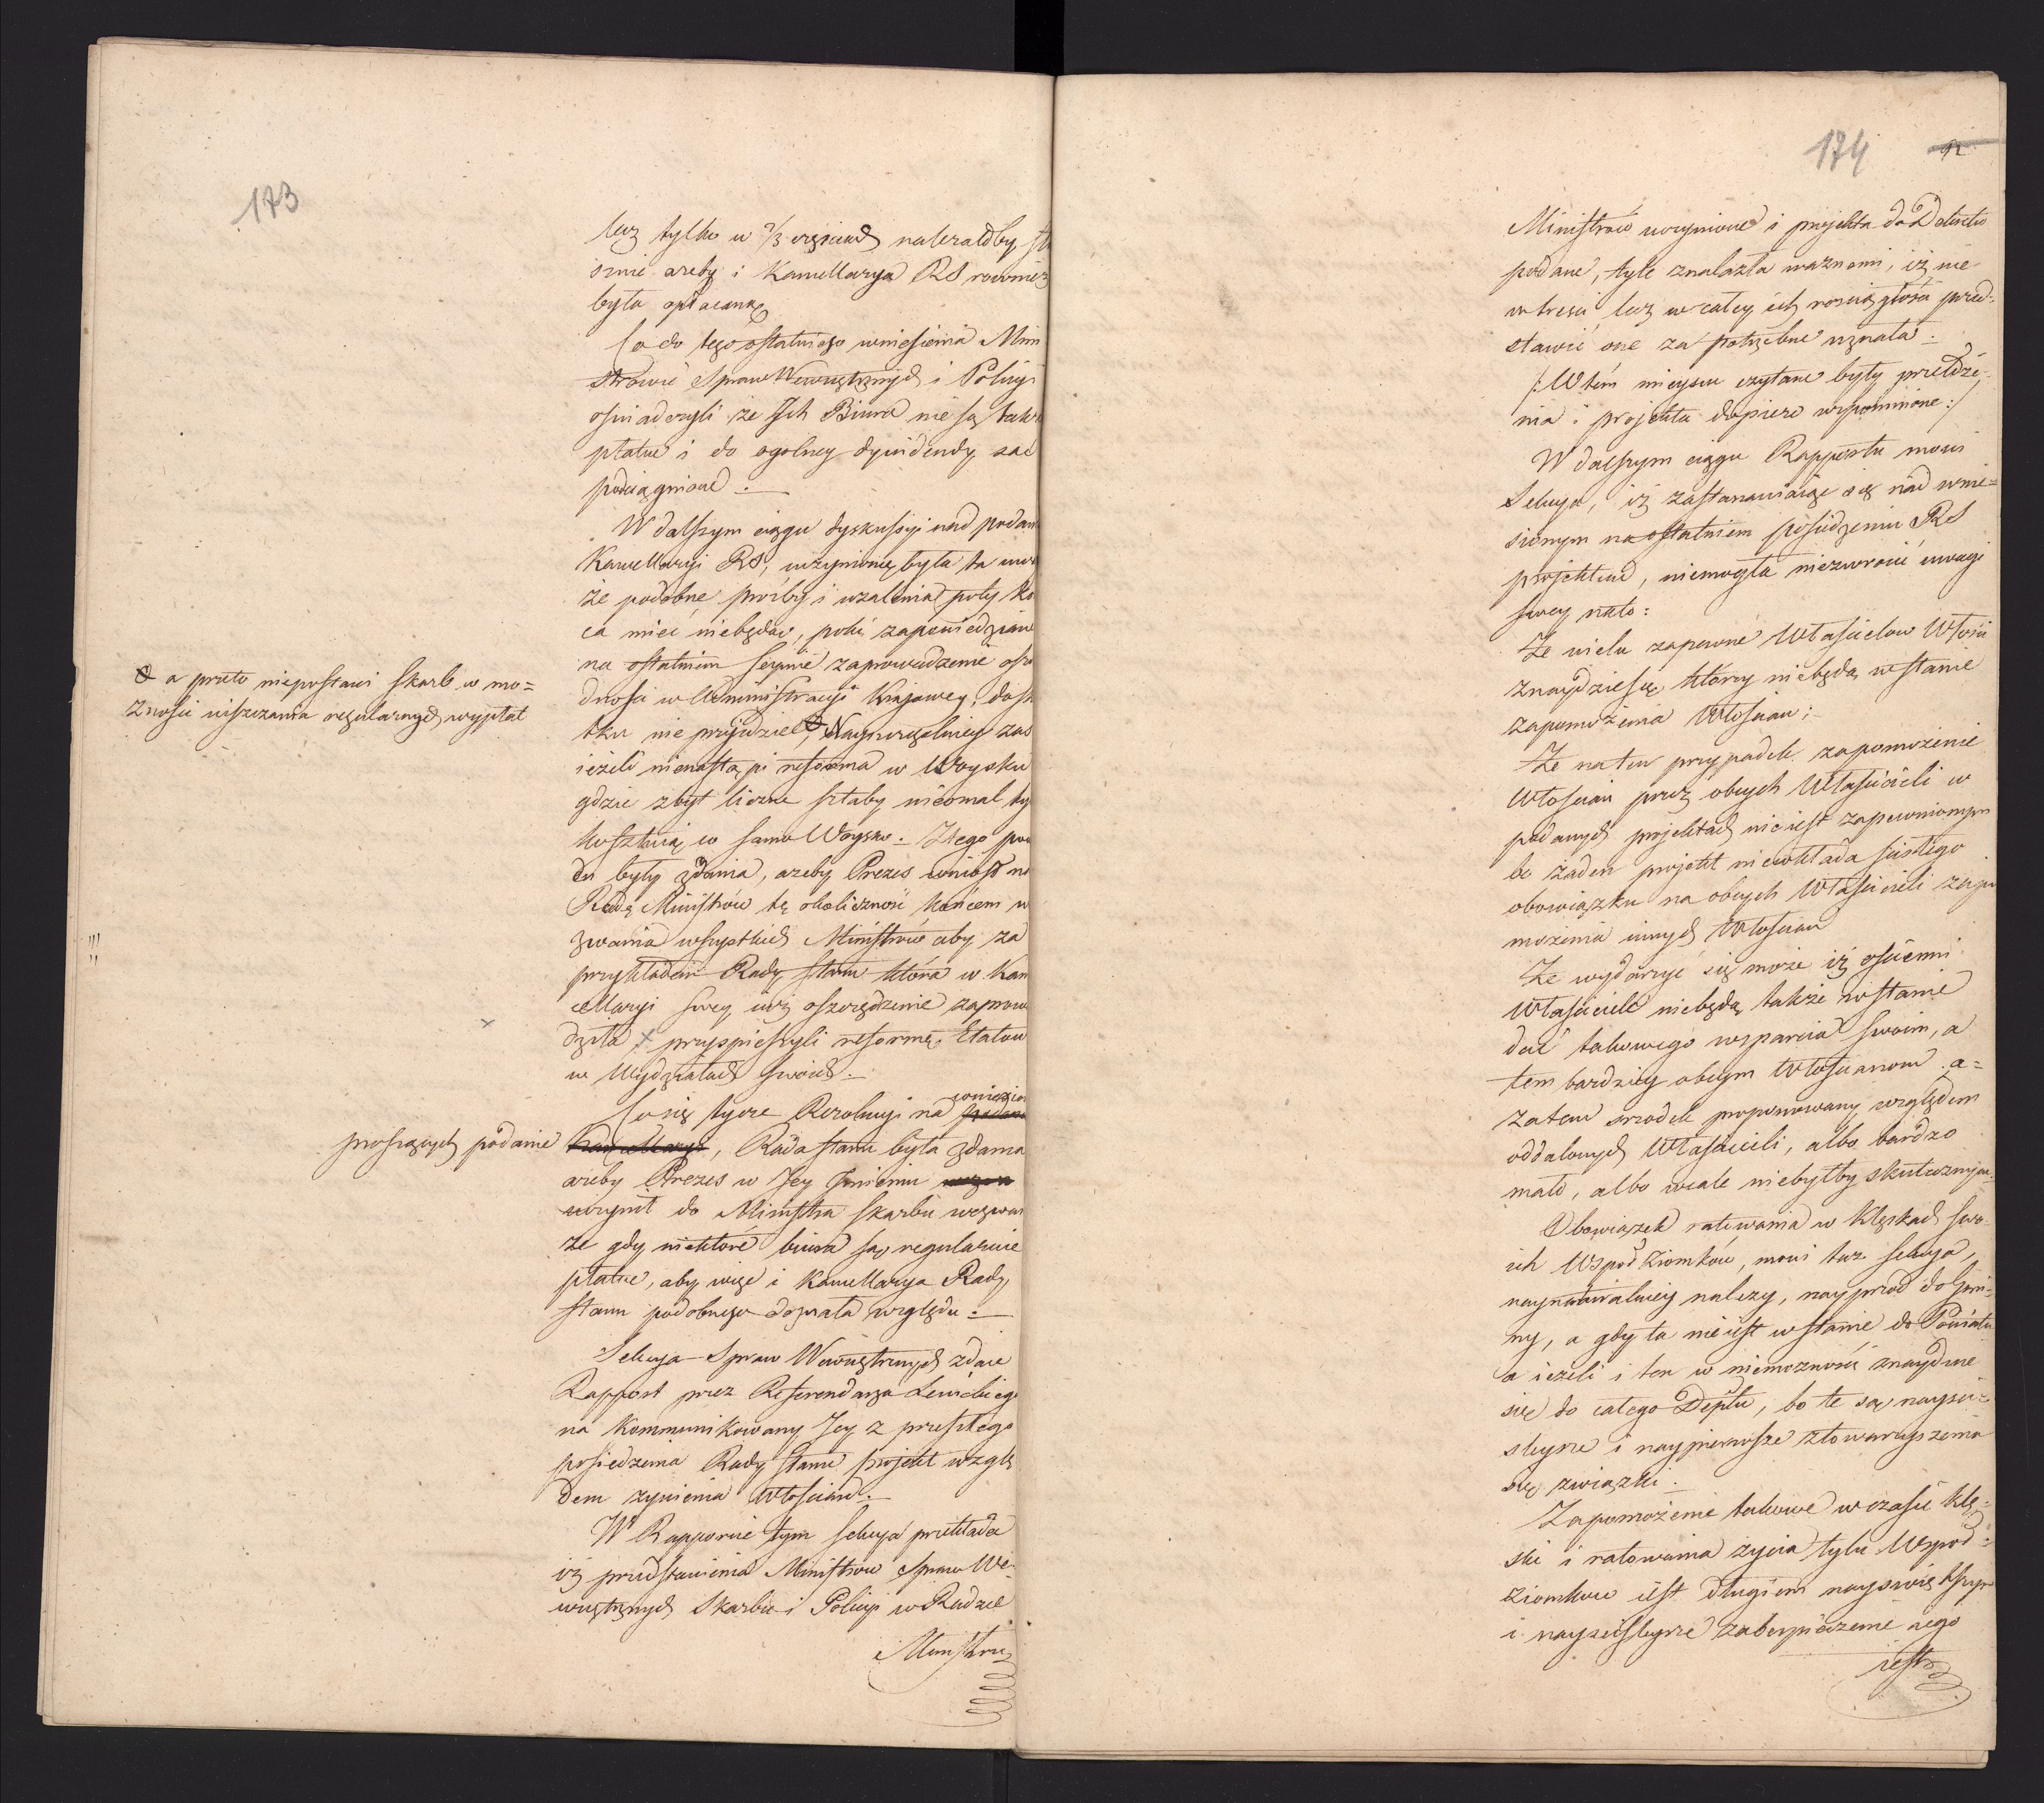 173
lecz tylko w 2/3 częściach należałby
ażeby i Kancellarya RS również
była opłacaną
Co do tego ostatniego wniesienia Mini
strowie Spraw Wewnętrznych i Policyi
oświadczyli że Ich Biura nie są
płatne i do ogolney dywidendy
podciągnione.
W dalszym ciągu dyskussyi nad podan
Kancellaryi RS, uczynioną była ta uwa
że podobne prośby i użalenia poty ko
ca mieć niebędą, poki zapowiedziane
na ostatnim Seymie zaprowadzenie oszc
dności w Administracyi Krajowey, do
tku nie przyidzie, Nayszczególniey zaś
ieżeli nienastąpi reforma w Woysku
gdzie zbyt liczne sztaby nieomal ty
kosztuią co samo Woysko. Z tego po
du były zdania, ażeby Prezes wniosł na
Radę Ministrów tę okoliczność końcem w
zwania wszystkich Ministrow aby za
przykładem Rady Stanu która w Kan
cellaryi swey iuż oszczędzenie zaprow
dziła, przyspieszyli reformę Etatow
w Wydziałach swoich.
a przeto niepostawi Skarb w mo=
żności uiszczania regularnych wypłat
Co się tycze Rezolucyi na wniesion
proszących podanie Kancellaryi, Rada Stanu była zdania
ażeby Prezes w Jey Imieniu
uczynił do Ministra Skarbu wezwan
że gdy niektóre biura są regularnie
płatne, aby więc i Kancellarya Rady
Stanu podobnego doznała względu.
Sekcya Spraw Wewnętrznych zdaie
Rapport przez Referendarza Lewickiego
na kommunikowany Jey z przeszłego
posiedzenia Rady Stanu projekt wzglę
dem żywienia Włościan.
W Rapporcie tym Sekcya przekłada
iż przedstawienia Ministrow Spraw We-
wnętrznych Skarbu i Policyi w Radzie
Ministrow
174
92
Ministrów uczynione i projekta do Dekretu
podane, tyle znalazła ważnemi, iż nie
w treści, lecz w całey ich rosciągłości przed-
stawić one za potrzebne uznała.
/: W tém mieyscu czytane były przełoże-
nia i projekta dopiero wspomnione :/
W dalszym ciągu Rapportu mowi
Sekcya, iż zastanawiaiąc się nad wnie=
sionym na ostatniem posiedzeniu RS
projektem, niemogła niezwrocić uwagi
swey na to:
Że wielu zapewne Właścicielow Włości
znaydzie się, którzy niebędą w stanie
zapomożenia Włościan;
Że na ten przypadek zapomożenie
Włościan przez obcych Właścicieli w
podanych projektach nie iest zapewnionym
bo żaden projekt niewkłada ścisłego
obowiązku na obcych Właścicieli zapo
możenia innych Włościan
Że wydarzyć się może iż ościenni
Właściciele niebędą także w stanie
dać takowego wsparcia swoim, a
tem bardziey obcym Włościanom. a=
zatem srzodek proponowany względem
oddalonych Właścicieli, albo bardzo
mało, albo wcale niebyłby skutecznym.
Obowiązek ratowania w klęskach swo-
ich Wspołziomków, mowi taż Sekcya,
naynaturalniey należy, nayprzod do Gmi-
ny, a gdy ta nie iest w stanie do Powiatu
a ieżeli i ten w niemożności znaydzie
się do całego Deptu, bo te są nayści-
śleysze i naypierwsze stowarzyszenia
się związki.
Zapomożenie takowe w czasie klę-
ski i ratowania życia tylu Wspoł-
ziomkow iest długiem nayswiętszym
i nayściśleysze zabezpieczenie iego
iest